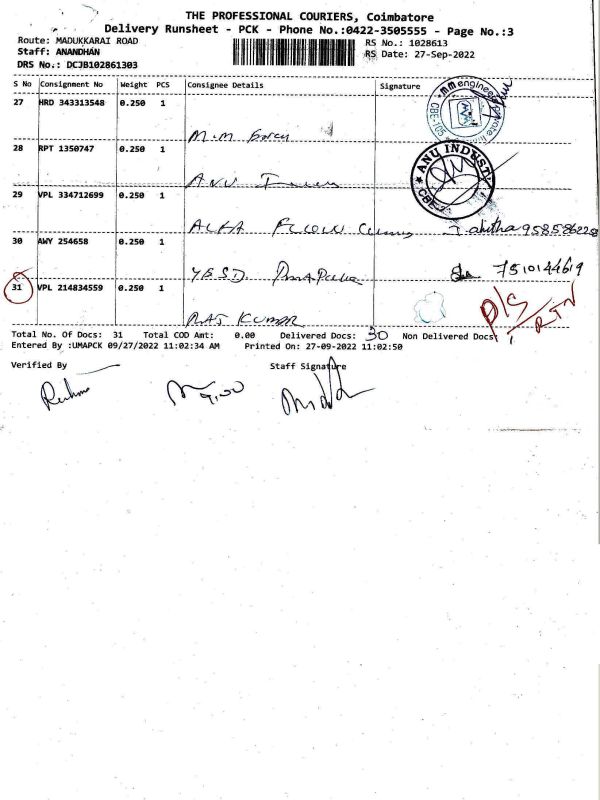 THE PROFESSIONAL COURIERS, Coimbatore
Delivery Runsheet - PCK - Phone No.:0422-3505555 - Page No.:3
Route: MADUKKARAI ROAD
RS No.: 1028613
Staff: ANANDHAN
RS Date: 27-Sep-2022
DRS No.: DCJB102861303
S No Consignment No Weight PCS Consignee Details Signature
27 HRD 343313548 0.250 1
M.M
mm engineer
CBE-105
28 RPT 1350747 0.250 1
ANU
ANU INDUST
CBE-2
29 VPL 334712699 0.250 1
ALFA
30 AWY 254658 0.250 1
7510144619
31 VPL 214834559 0.250 1
RAJ KUMAR
D/S
RTN
Total No. Of Docs: 31 Total COD Amt: 0.00 Delivered Docs: 30 Non Delivered Docs: 1
Entered By :UMAPCK 09/27/2022 11:02:34 AM Printed On: 27-09-2022 11:02:50
Verified By Staff Signature